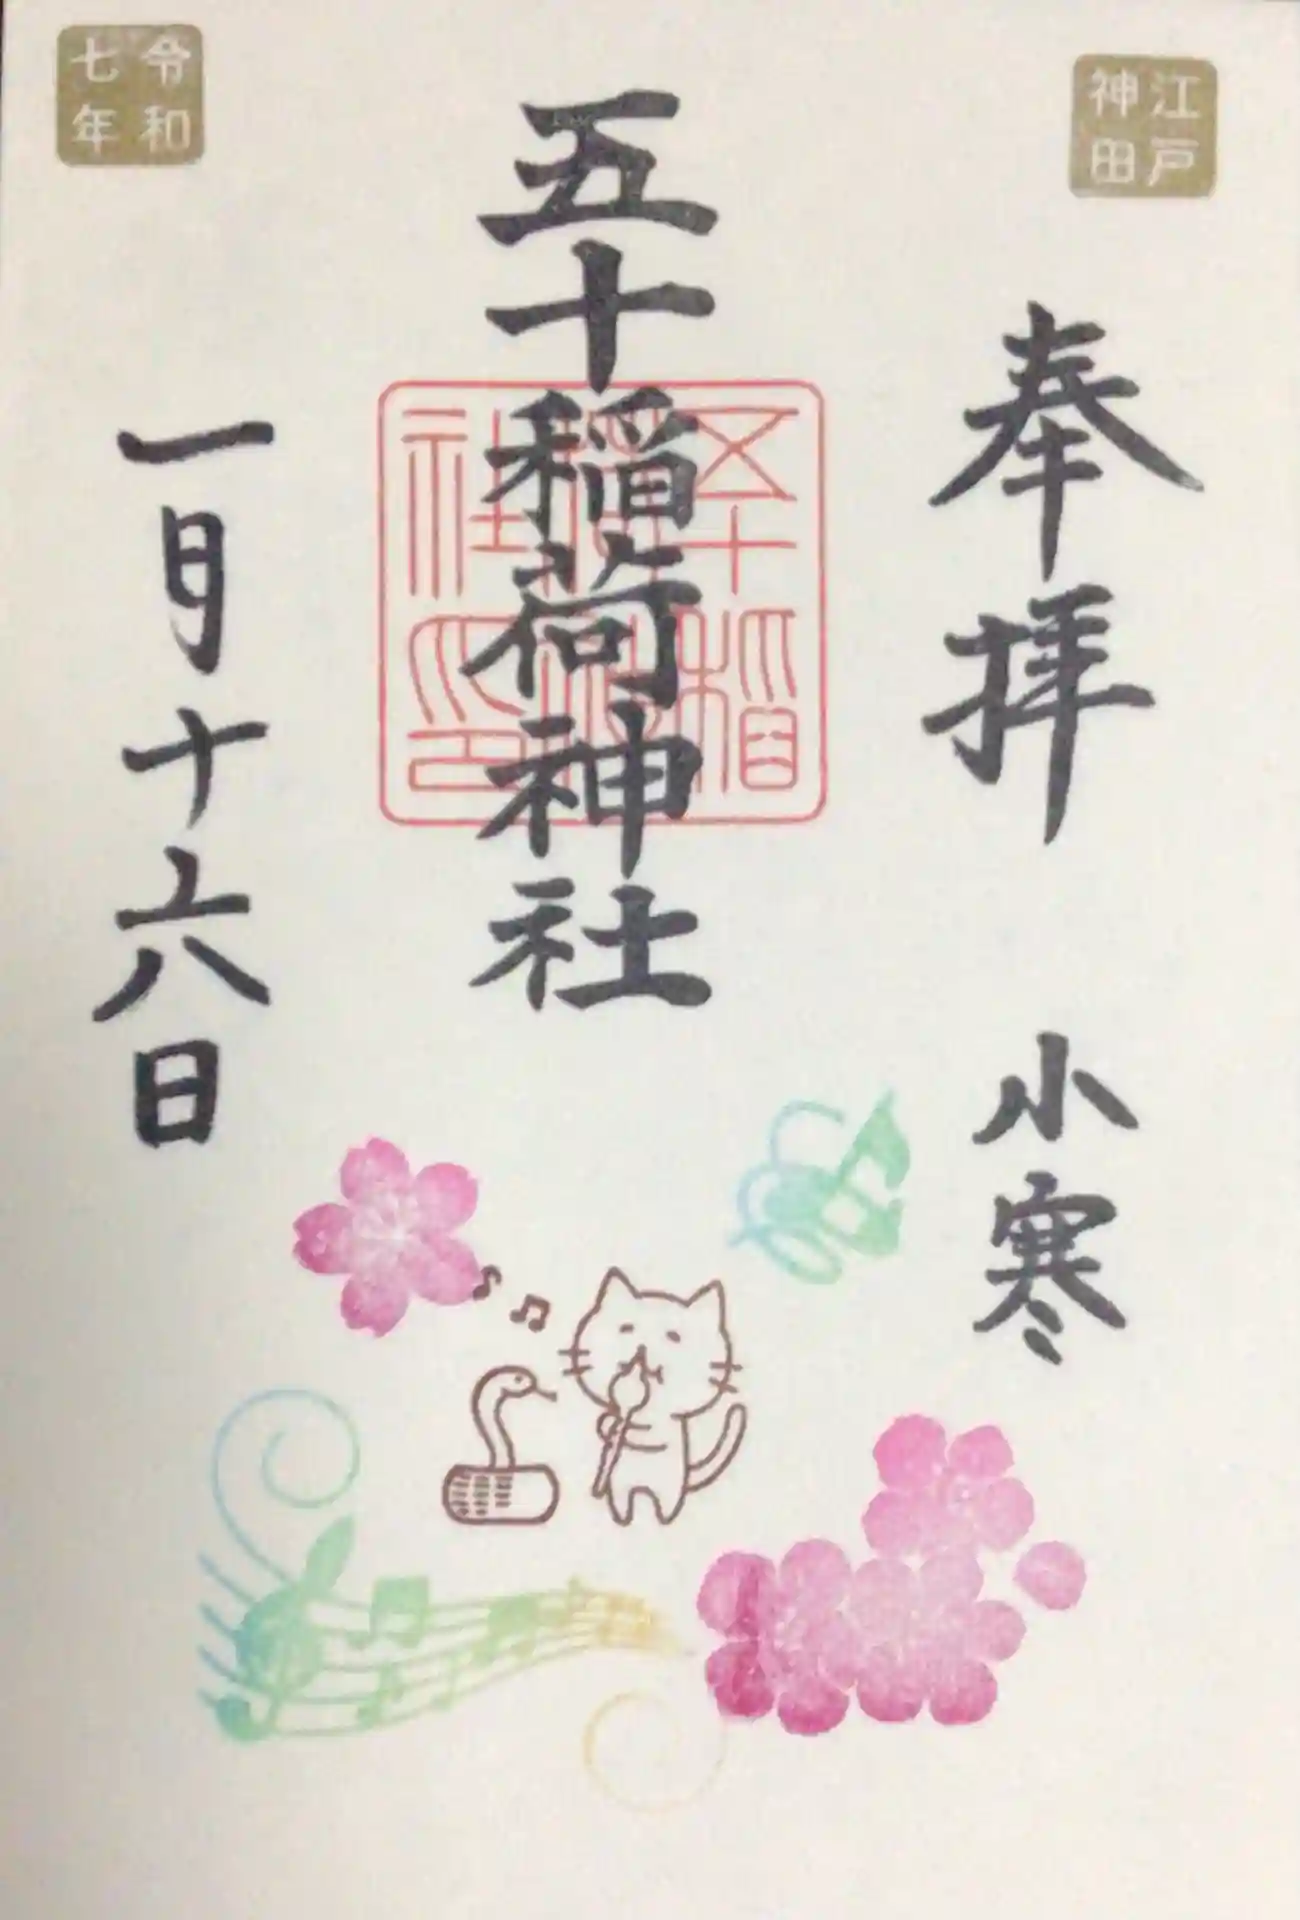 江戸
神田
奉拝
小寒
五十稲荷神社
五十稲
荷神
社印
令和
七年
一月十六日